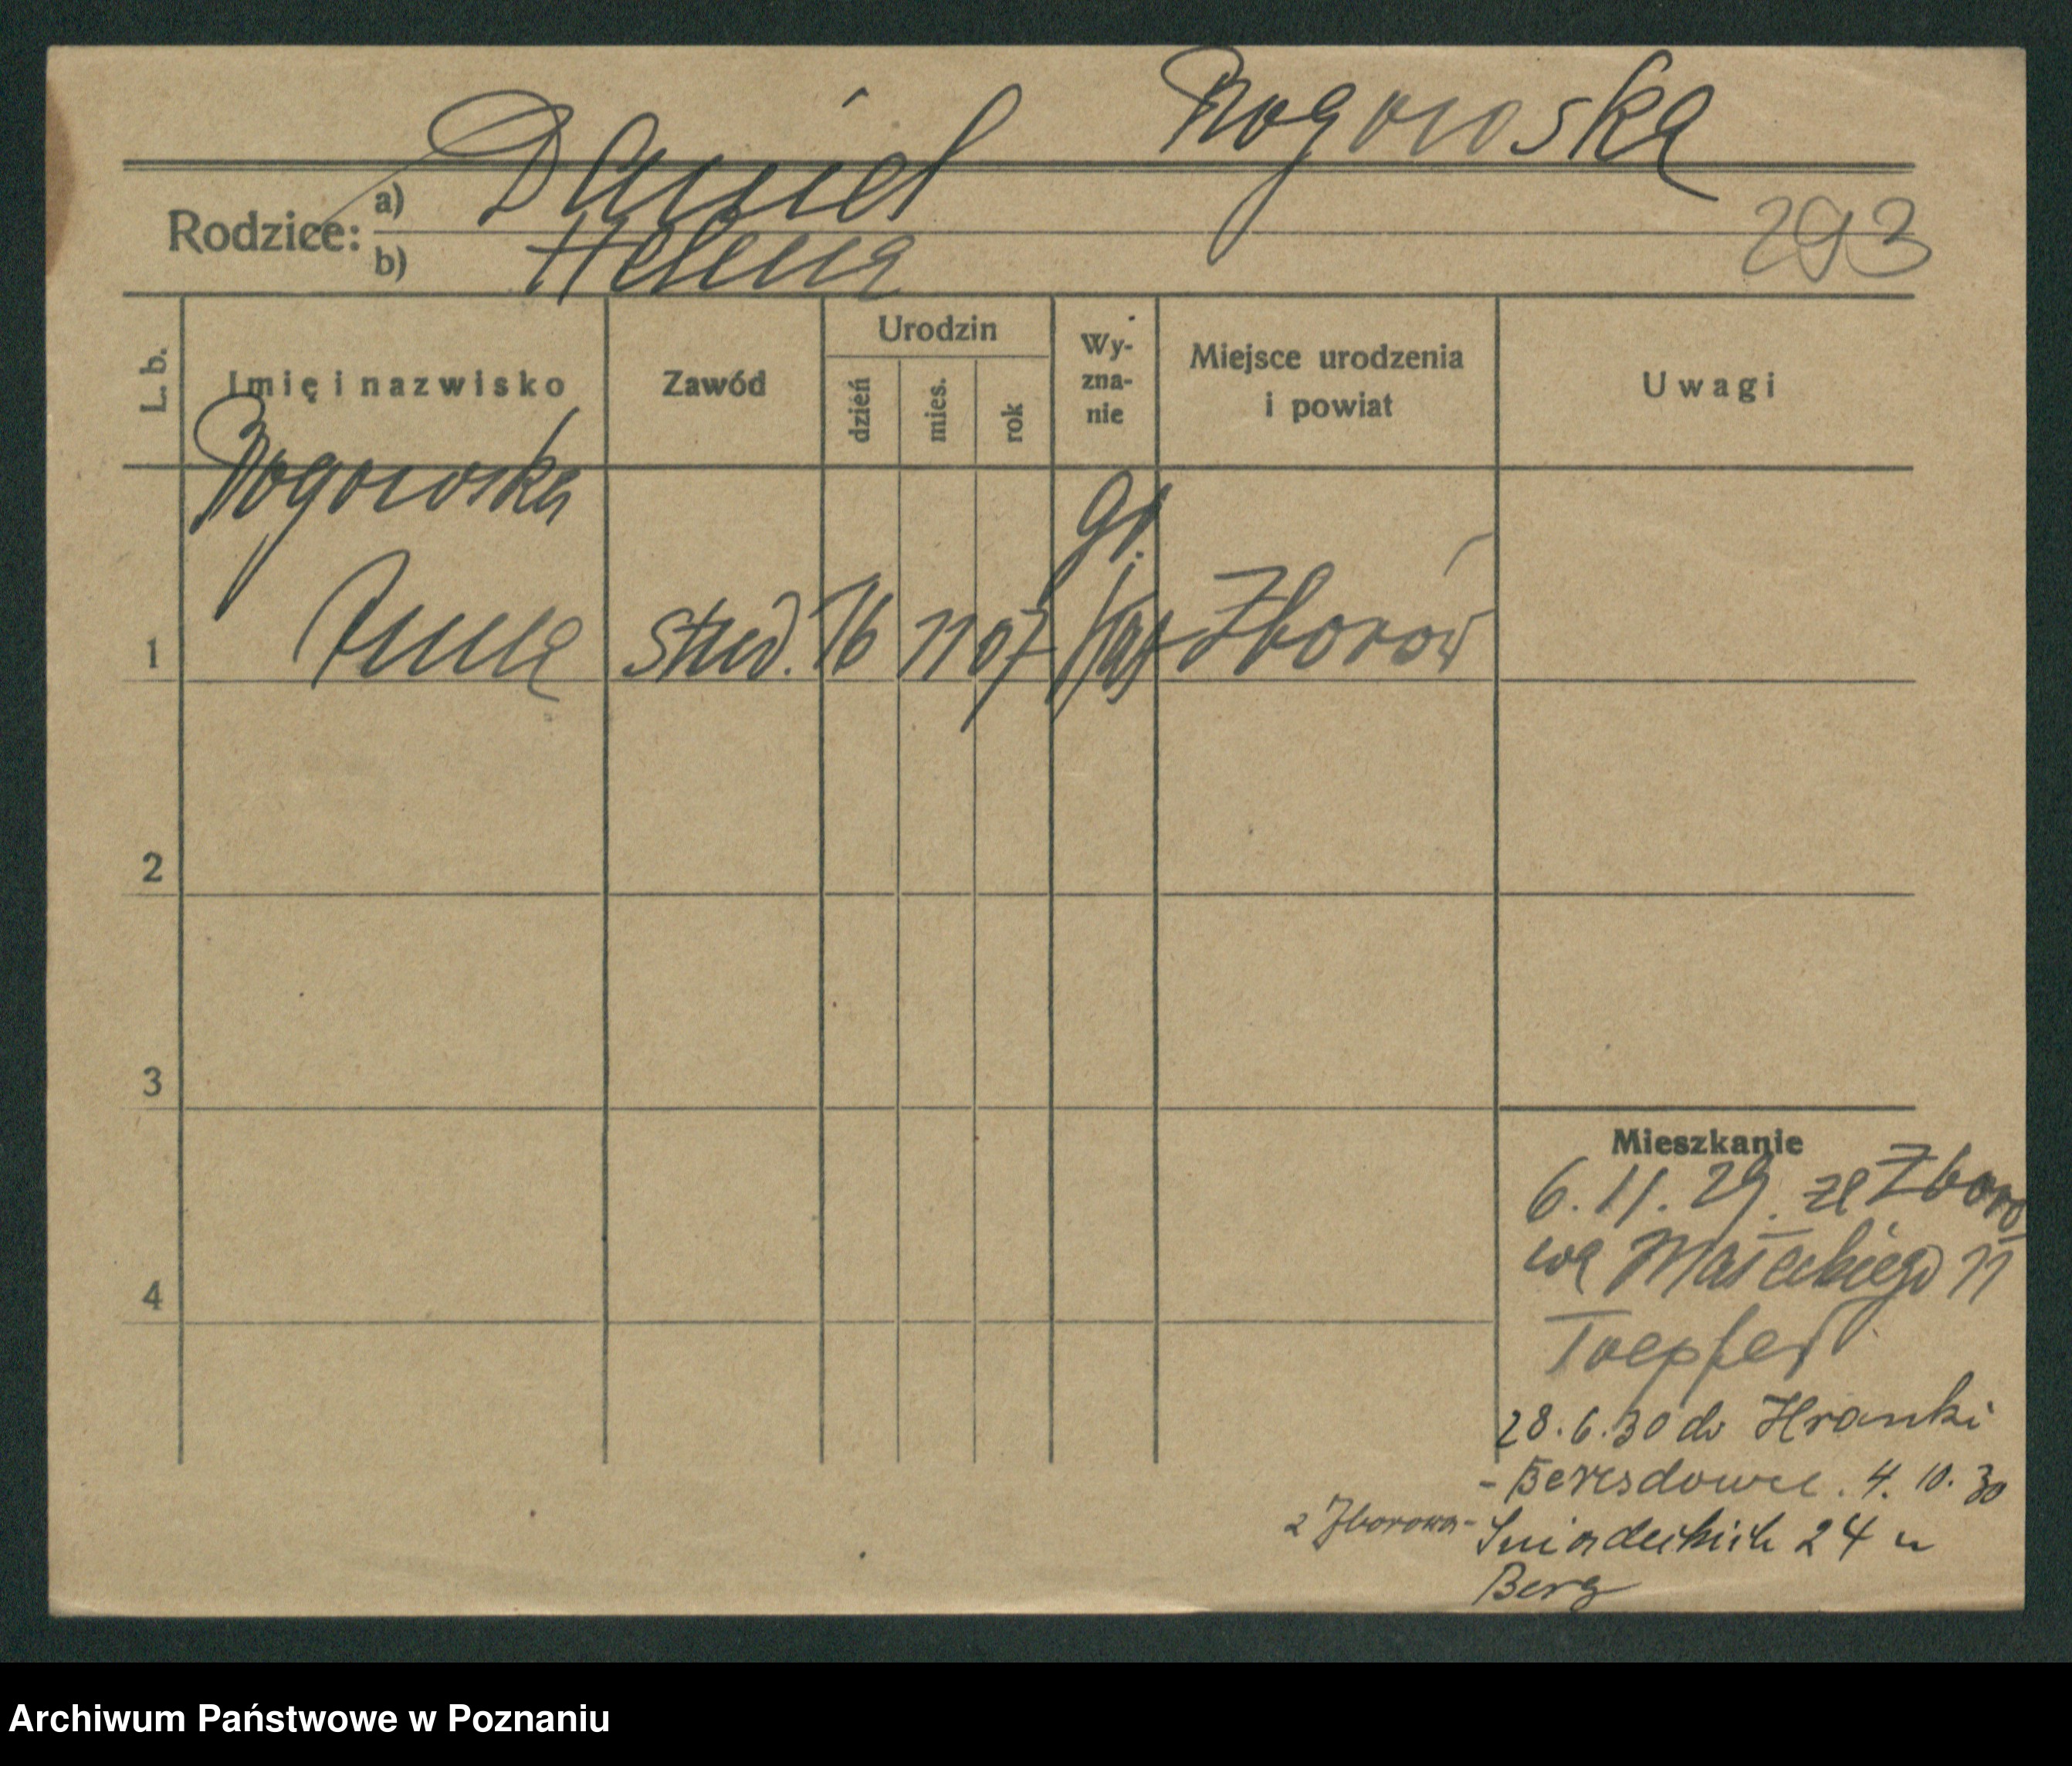 Rogowska
Rodzice: a) Daniel
b) Helena
293
L. b.
Imię i nazwisko
Zawód
Urodzin
dzień
mies.
rok
Wy-
zna-
nie
Miejsce urodzenia
i powiat
Uwagi
Rogowska
gr.
1 Anna stud. 16 11 07 kat Zborów
2
3
4
Mieszkanie
6.11.29. ze Zboro
wa Małeckiego 11
Toepfer
28.6.30 do Hranki
4.10.30
z Zborowa - Śniadeckich 24 u
Berg